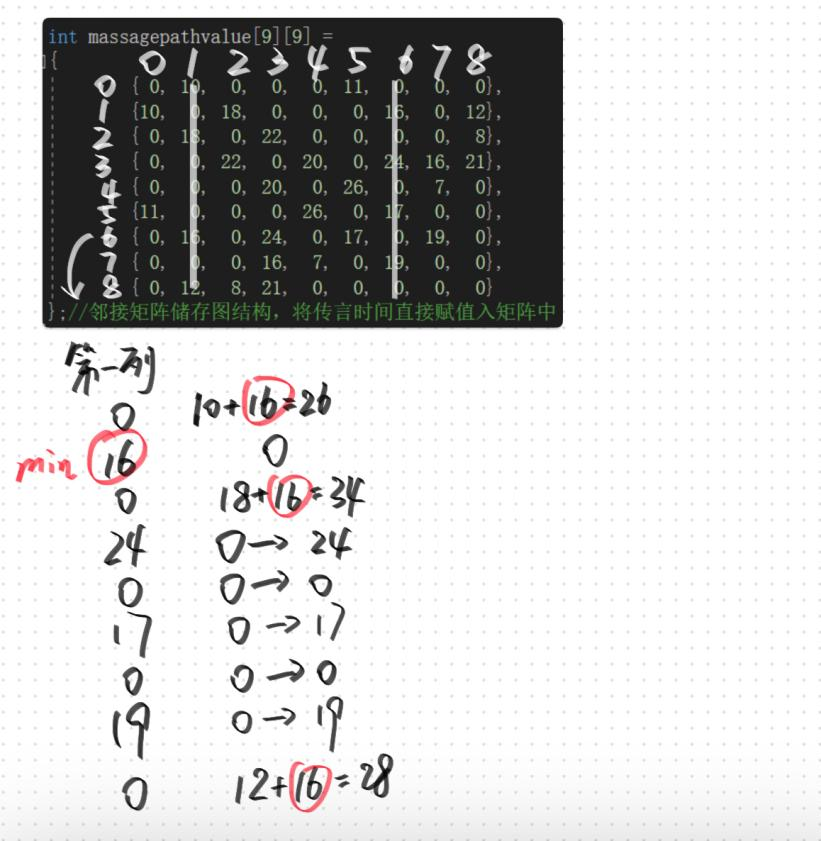 int massagepathvalue[9][9] =
{
0 1 2 3 4 5 6 7 8
0 { 0, 10, 0, 0, 0, 11, 0, 0, 0},
1 {10, 0, 18, 0, 0, 0, 16, 0, 12},
2 { 0, 18, 0, 22, 0, 0, 0, 0, 8},
3 { 0, 0, 22, 0, 20, 0, 24, 16, 21},
4 { 0, 0, 0, 20, 0, 26, 0, 7, 0},
5 {11, 0, 0, 0, 26, 0, 17, 0, 0},
6 { 0, 16, 0, 24, 0, 17, 0, 19, 0},
7 { 0, 0, 0, 16, 7, 0, 19, 0, 0},
8 { 0, 12, 8, 21, 0, 0, 0, 0, 0}
};//邻接矩阵储存图结构，将传言时间直接赋值入矩阵中
第一列
0 10+16=26
min 16 0
0 18+16=34
24 0→ 24
0 0→ 0
17 0→17
0 0→0
19 0→ 19
0 12+16=28